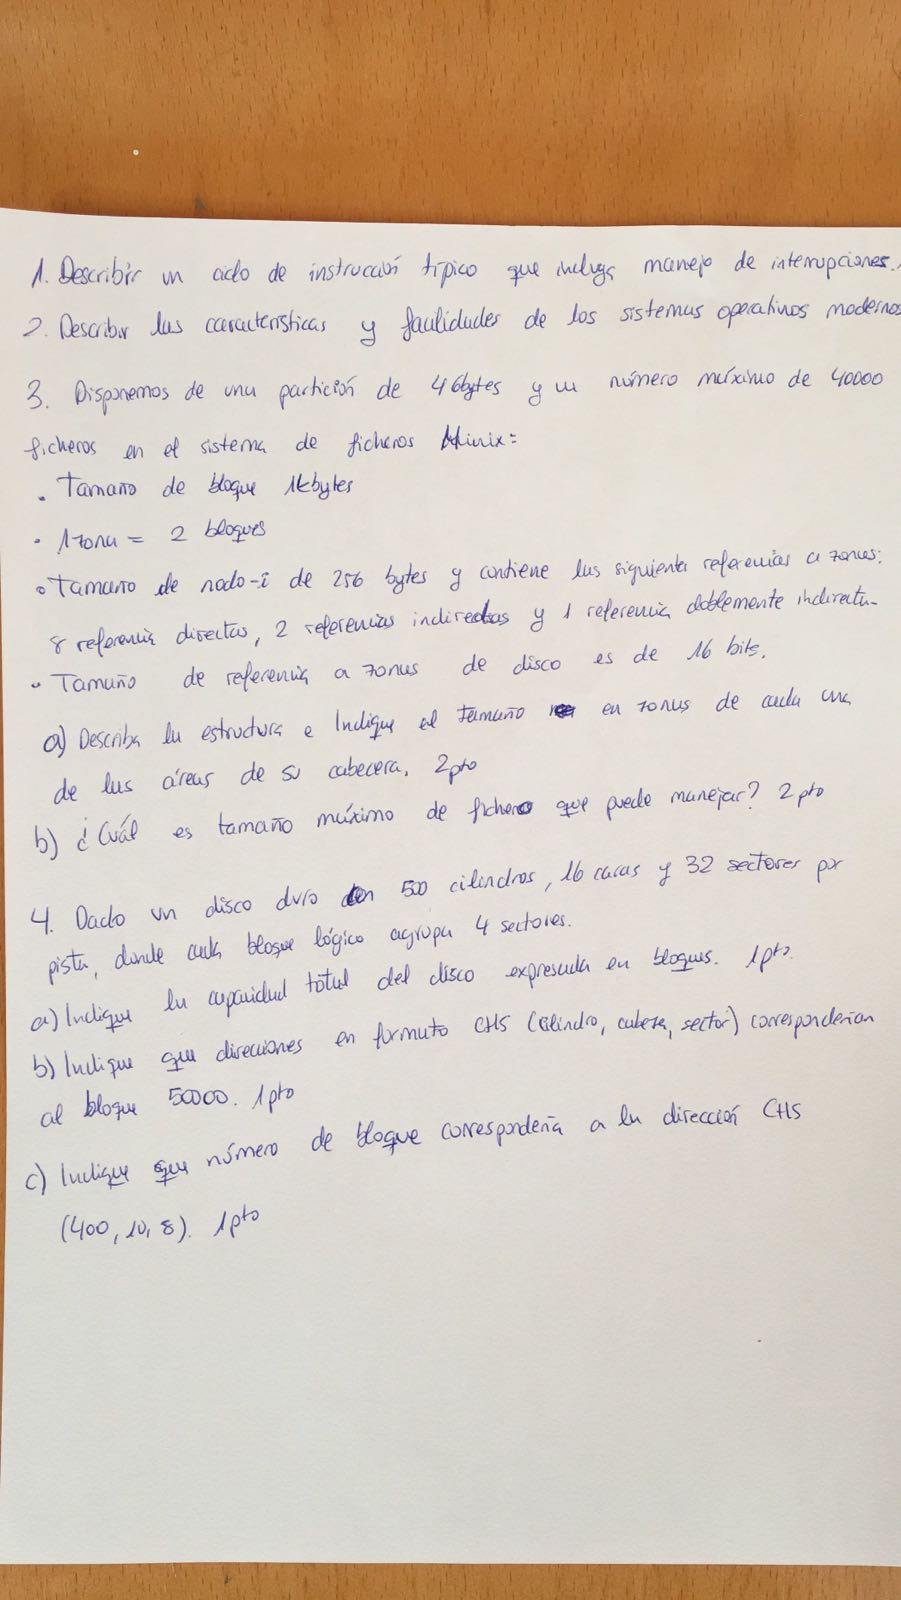 1. Describir un ciclo de instrucción típico que incluya manejo de interrupciones.
2. Describir las características y facilidades de los sistemas operativos modernos
3. Disponemos de una partición de 4Gbytes y un número máximo de 40000
ficheros en el sistema de ficheros Minix:
• Tamaño de bloque 1kbytes
• 1 zona = 2 bloques
• Tamano de nodo-i de 256 bytes y contiene las siguiente referencias a zonas:
8 referencia directas, 2 referencias indirectas y 1 referencia doblemente indirecta.
• Tamaño de referencia a zonas de disco es de 16 bits.
a) Describa la estructura e Indique el tamaño en zonas de cada una
de las áreas de su cabecera. 2pto
b) ¿Cuál es tamaño máximo de fichero que puede manejar? 2 pto
4. Dado un disco duro con 500 cilindros, 16 caras y 32 sectores por
pista, donde cada bloque lógico agrupa 4 sectores.
a) Indique la capacidad total del disco expresada en bloques. 1pto.
b) Indique que direciones en formato CHS (cilindro, cabeza, sector) corresponderian
al bloque 50000. 1pto
c) Indique que número de bloque correspondería a la dirección CHS
(400, 10, 8). 1pto